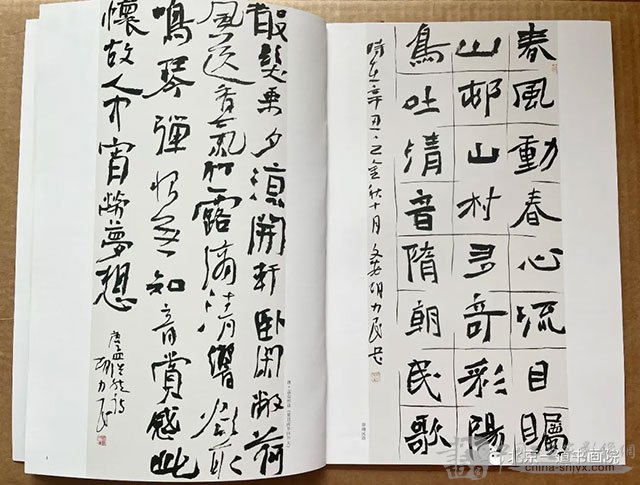 散髮乘夕涼開軒臥閑敞荷
風送香氣竹露滴清響欲取
鳴琴彈恨無知音賞感此
懷故人中宵勞夢想
唐孟浩然詩
胡力民
春風動春心流目矚
山邨山村多奇彩陽
鳥吐清音隋朝民歌
時在辛丑之金秋十月
北京一道书画院